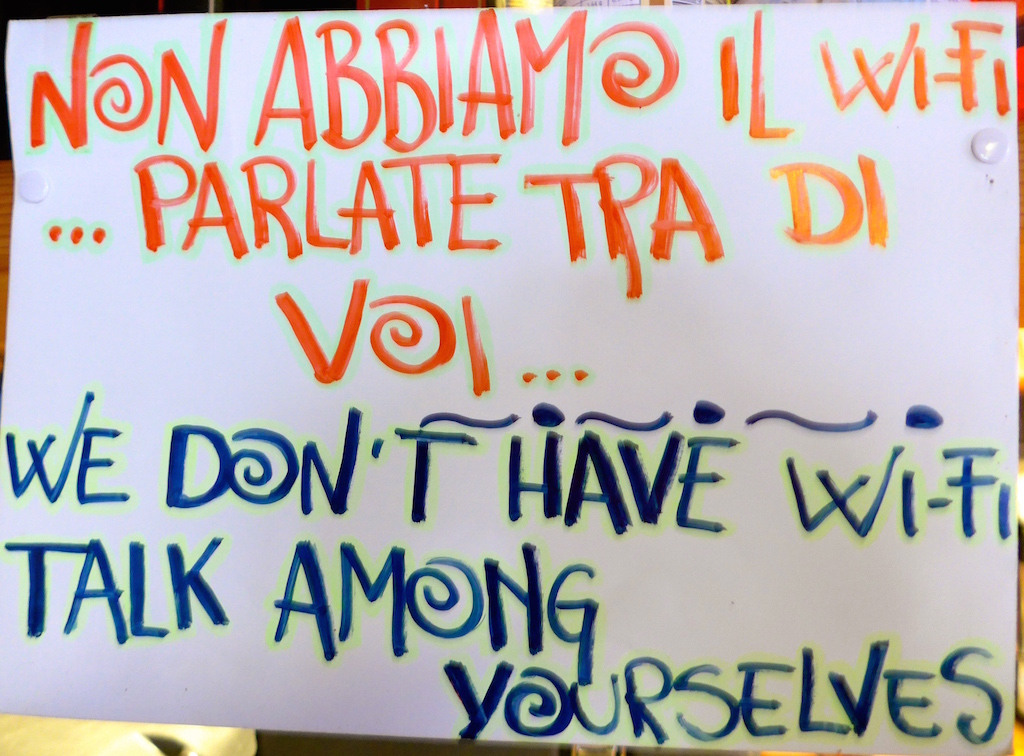 NON ABBIAMO IL WI-FI
... PARLATE TRA DI
VOI ...
WE DON'T HAVE WI-FI
TALK AMONG
YOURSELVES